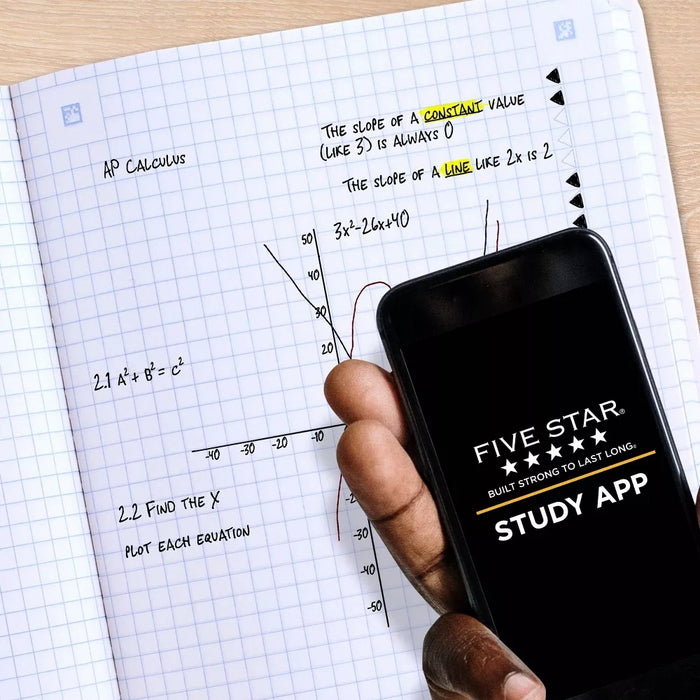 AP CALCULUS
THE SLOPE OF A CONSTANT VALUE
(LIKE 3) IS ALWAYS 0
THE SLOPE OF A LINE LIKE 2x IS 2
3x²-26x+40
50
40
30
20
2.1 A² + B² = C²
-40 -30 -20 -10
2.2 FIND THE X
PLOT EACH EQUATION
-30
-40
-50
FIVE STAR®
BUILT STRONG TO LAST LONG®
STUDY APP